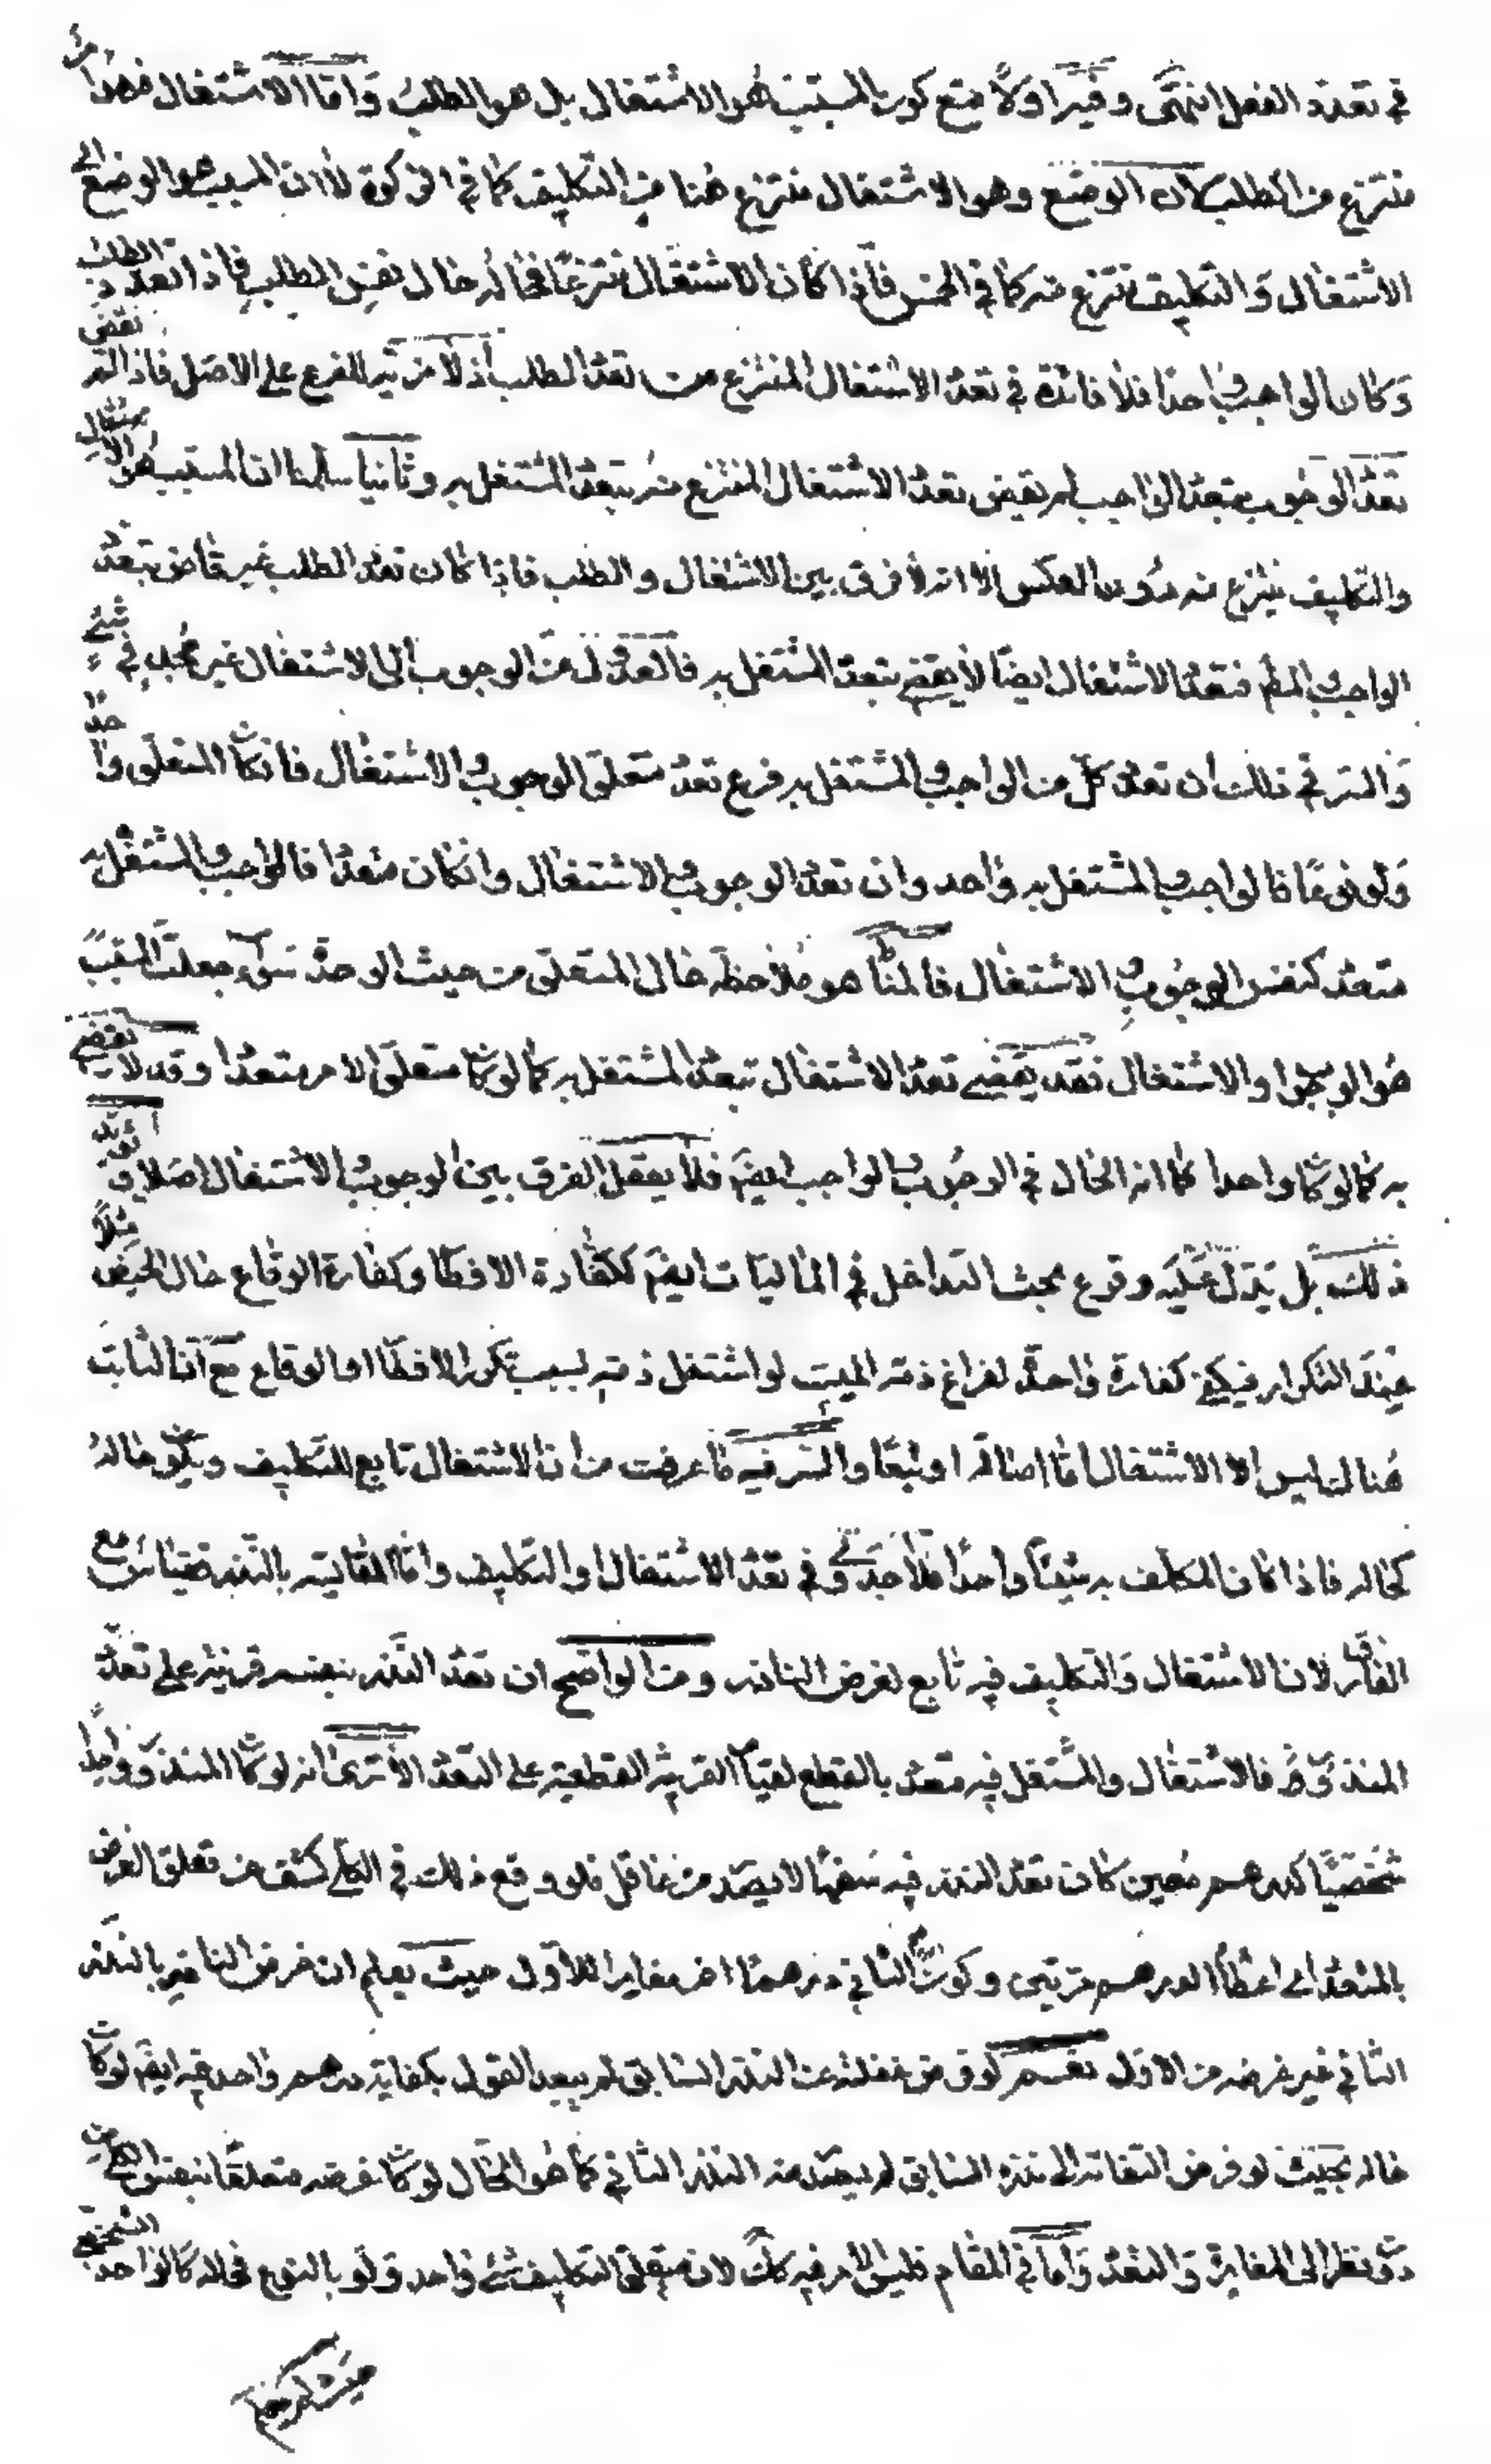 في تعدد الفعل انتهى وفيه اولا منع كون المسبب هو الاشتغال بل هو الطلب واما الاشتغال فهو امر
منتزع من الطلب لان الوضع وهو الاشتغال منتزع هنا من التكليف كما في الزكوة لا ان المسبب هو الوضع اى
الاشتغال والتكليف ينتزع منه كما في الخمس فاذا كان الاشتغال منتزعا فحاله حال نفس الطلب فاذا تعدد الطلب
وكان الواجب واحدا فلا فائدة في تعدد الاشتغال المنتزع من تعدد الطلب اذ لا مزية للفرع على الاصل فاذا لم يقض
تعدد الوجوب بتعدد الواجب لم يقض تعدد الاشتغال المنتزع منه بتعدد المشتغل به وثانيا سلمنا ان المسبب هو الاشتغال
والتكليف ينتزع منه دون العكس الا انه لا فرق بين الاشتغال والطلب فاذا كان تعدد الطلب غير قاض بتعدد
الواجب المط فتعدد الاشتغال ايضا لا يقضى بتعدد المشتغل به فالعدول من الوجوب الى الاشتغال غير مجد في شئ
والسر في ذلك ان تعدد كل من الواجب والمشتغل به فرع تعدد متعلق الوجوب والاشتغال فان كان المتعلق واحدا
ولو نوعا فالواجب والمشتغل به واحد وان تعدد الوجوب والاشتغال وان كان متعددا فالواجب والمشتغل به
متعدد كنفس الوجوب والاشتغال فالمناط هو ملاحظة حال المتعلق من حيث الوحدة سواء جعلت المسبب
هو الوجوب او الاشتغال فقد يقضى تعدد الاشتغال بتعدد المشتغل به كما لو كان متعلق الامر متعددا وقد لا يقضى
به كما لو كان واحدا كما انه الحال في الوجوب والواجب ايضا فلا يعقل الفرق بين الوجوب والاشتغال اصلا ويؤيد
ذلك بل يدل عليه وقوع بحث التداخل في الماليات ايضا ككفارة الافطار وكفارة الوقاع حال الحيض مثلا
عند التكرار فيكفى كفارة واحدة لفراغ ذمة الميت لو اشتغل ذمته بسبب تكرر الافطار او الوقاع مع ان الثابت
هنالك ليس الا الاشتغال اما اصالة او تبعا والسر فيه ما عرفت من ان الاشتغال تابع للتكليف ويكون حاله
كحاله فاذا كان المكلف به شيئا واحدا فلا جدوى في تعدد الاشتغال او التكليف واما المقايسة بالنذر فقياس مع
الفارق لان الاشتغال والتكليف فيه تابع لغرض الناذر ومن الواضح ان تعدد النذر بنفسه قرينة على تعدد
المنذور فالاشتغال والمشتغل فيه متعدد بالقطع لقيام القرينة القطعية على التعدد الا ترى انه لو كان المنذور واحدا
شخصيا كدرهم معين كان تعدد النذر فيه سفها لا يصدر من عاقل فلو وقع ذلك في الكلى كشف من تعلق الغرض
بالمتعدد اى اعطاء الدرهم مرتين وكون الثاني درهما اخر مغايرا للاول حيث يعلم ان غرض الناذر بالنذر
الثاني غير غرضه من الاول نعم لو فرض غفلته عن النذر السابق لم يبعد القول بكفاية درهم واحد فيه ايضا لو كان
حاله بحيث لو فرض التفاته الى نذره السابق لم يصدر منه النذر الثاني كما هو الحال لو كان غرضه متعلقا بنفس الكلى من
دون نظر الى المغايرة والتعدد واما في المقام فليس الامر فيه كذلك لان متعلق التكليف شئ واحد ولو بالنوع فحاله كالواحد الشخصى